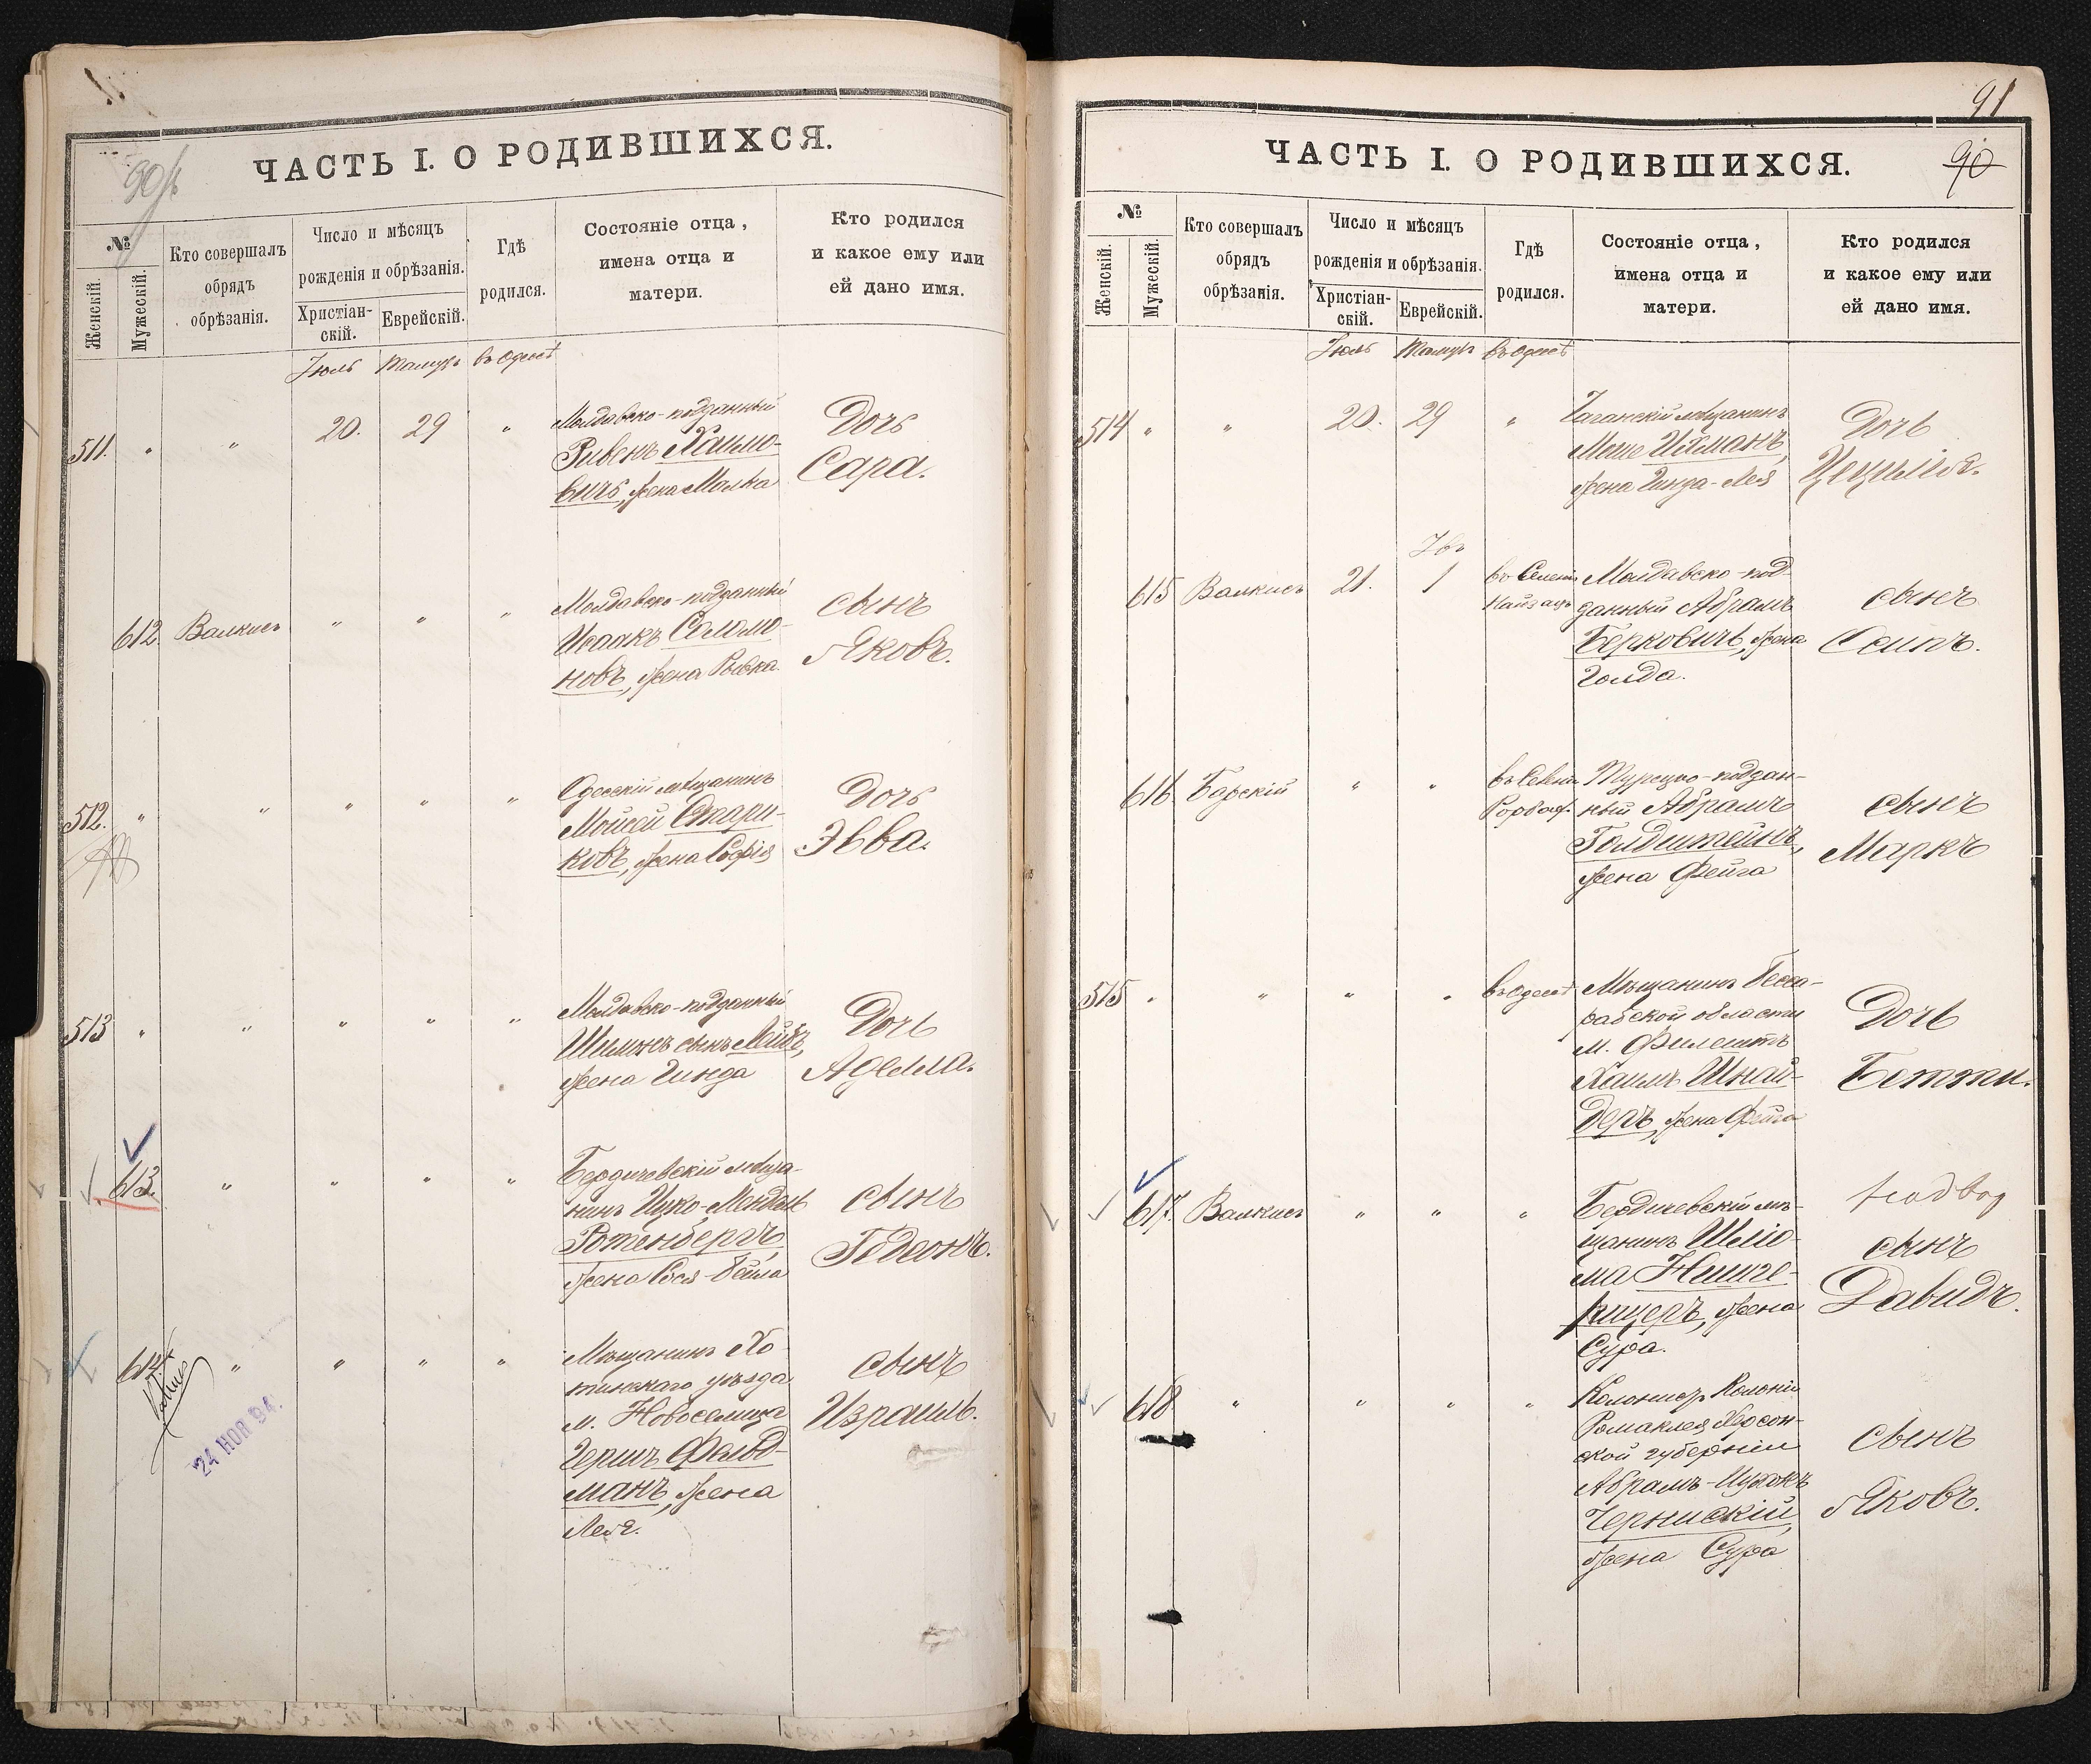 ЧАСТЬ I. О РОДИВШИХСЯ.
№
Женскій.
Мужескій.
Кто совершалъ
обрядъ
обрѣзанія.
Число и мѣсяцъ
рожденія и обрѣзанія.
Христіан-
скій.
Еврейскій.
Гдѣ
родился.
Состояніе отца,
имена отца и
матери.
Кто родился
и какое ему или
ей дано имя.
Іюль Тамузъ въ Одессѣ
511. " " 20. 29 "
Молдавско-подданный
Ривенъ Хаимо-
вичъ, жена Малка
Дочь
Сара.
612. Валкисъ " " "
Молдавско-подданный
Исаакъ Соломо-
новъ, жена Рывка
сынъ
Яковъ.
512. " " " " "
Одесскій мѣщанинъ
Мойсей Стари-
ковъ, жена Софія
Дочь
Эвва.
513 " " " " "
Молдавско-подданный
Шимонъ сынъ Лейбъ,
жена Гинда
Дочь
Аделла.
613. " " " "
Бердичевскій мѣща-
нинъ Ицко-Мендель
Ротенбергъ,
жена Бейла
сынъ
Гедеонъ.
614 " " " "
Мѣщанинъ Хо-
тинскаго уѣзда
м. Новоселица
Гершъ Фельд-
манъ, жена
Лея.
сынъ
Израиль.
24 НОЯ 94.
91
90
ЧАСТЬ I. О РОДИВШИХСЯ.
№
Женскій.
Мужескій.
Кто совершалъ
обрядъ
обрѣзанія.
Число и мѣсяцъ
рожденія и обрѣзанія.
Христіан-
скій.
Еврейскій.
Гдѣ
родился.
Состояніе отца,
имена отца и
матери.
Кто родился
и какое ему или
ей дано имя.
Іюль Тамузъ въ Одессѣ
514 " " 20. 29 "
мѣщанинъ
Моше Ихманъ,
жена Гинда-Лея
Дочь
Цецилія.
615 Валкисъ 21. 1
Молдавско-под-
данный Абрамъ
Берковичъ, жена
Голда.
сынъ
Осипъ.
616 Барскій " "
Турецко-поддан-
ный Абрамъ
Голдштейнъ,
жена Фейга
сынъ
Маркъ
515 " " " " въ Одессѣ
Мѣщанинъ Бесса-
рабской области
м. Фалешты
Хаимъ Шнай-
деръ, жена Фейга
Дочь
Бетти.
617. Валкисъ " " "
Бердичевскій мѣ-
щанинъ Шліо-
ма
жена
Сура.
сынъ
Давидъ.
618 " " " "
Колонистъ Колоніи
Ромаклея Херсон-
ской губерніи
Абрамъ-Ицхокъ
Чернискій,
жена Сура
сынъ
Яковъ.